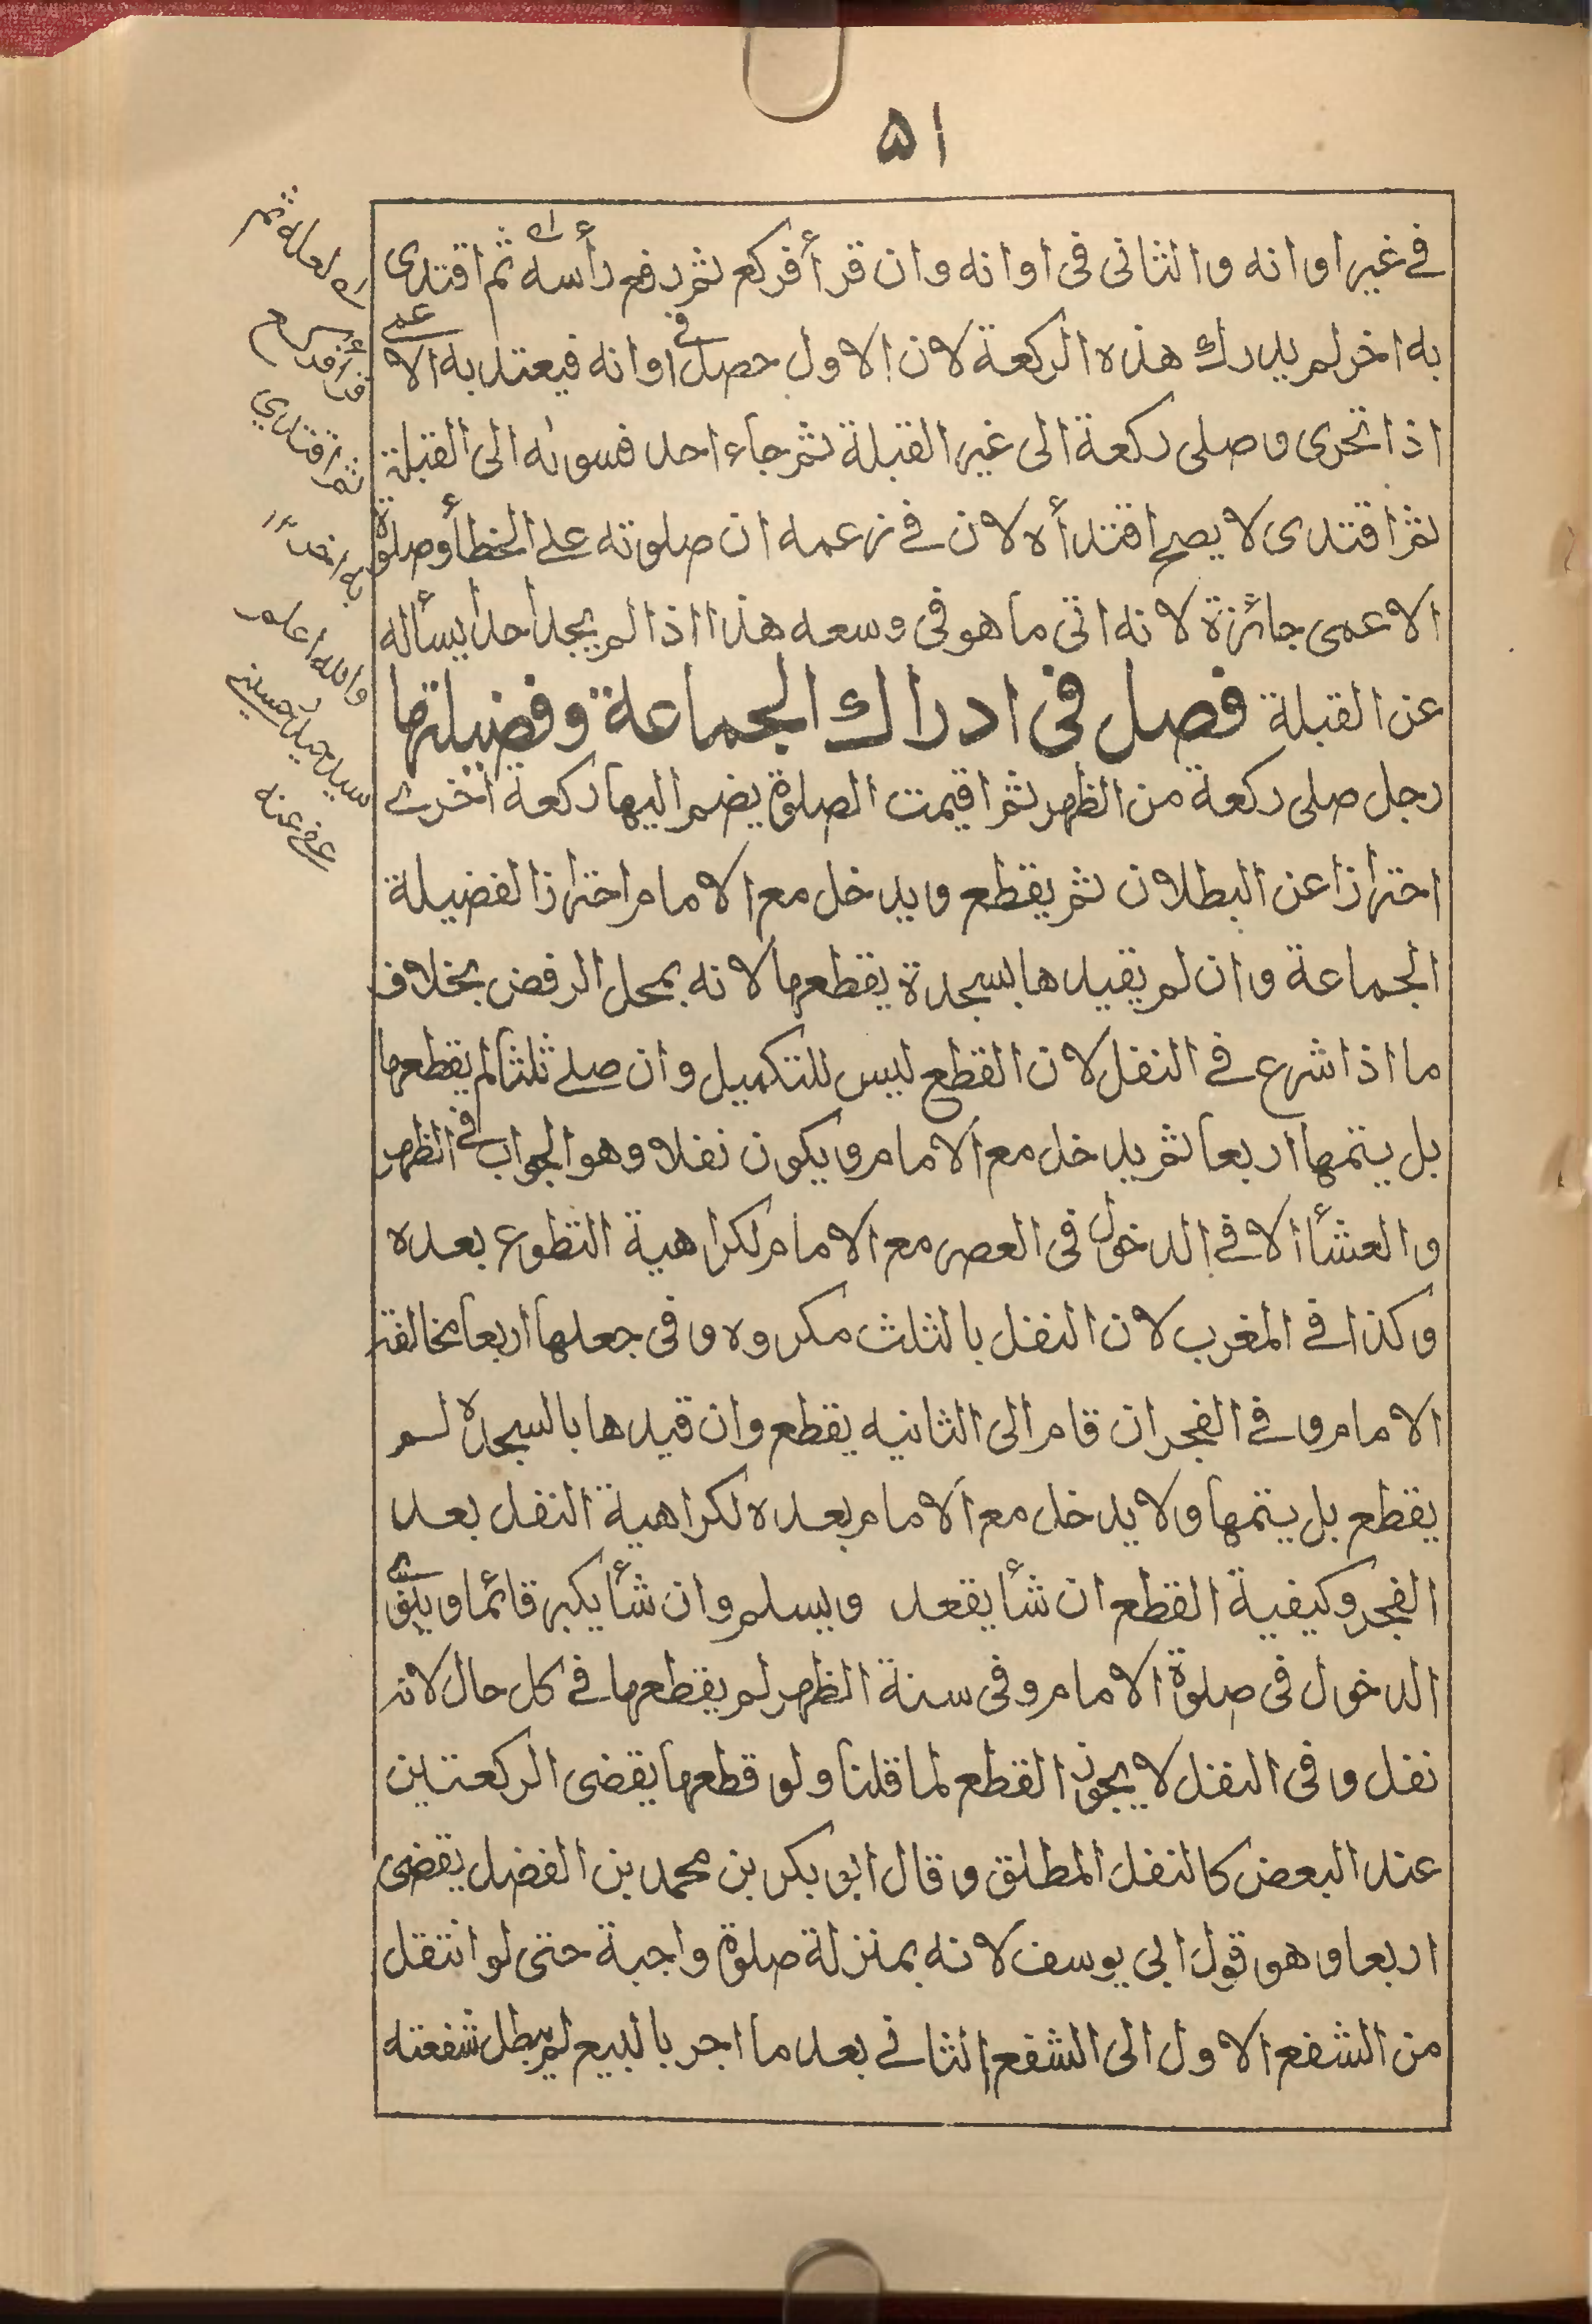 ۵۱
فے غیر اوانه والثانی فی اوانه وان قرأ فركع ثم رفع رأسه ثم اقتدی
به اخر لم یدرك هذه الركعة لان الاول حصل فی اوانه فیعتد به الاعمے
اذا تحری وصلی ركعة الی غیر القبلة ثم جاء احد فسوىٰه الی القبلة
ثم اقتدی لا یصح اقتدأه لان فے زعمه ان صلوته علے الخطأ وصلوة
الاعمی جائزة لانه اتی ما هو فی وسعه هذا اذا لم یجد احدا یسأله
عن القبلة فصل فی ادراك الجماعة وفضیلتها
رجل صلی ركعة من الظهر ثم اقیمت الصلوة یضم الیها ركعة اخرے
احترازا عن البطلان ثم یقطع ویدخل مع الامام احترازا لفضیلة
الجماعة وان لم یقیدها بسجدة یقطعها لانه بمحل الرفض بخلاف
ما اذا شرع فے النفل لان القطع لیس للتكمیل وان صلے ثلثا لم یقطعها
بل یتمها اربعا ثم یدخل مع الامام ویكون نفلا وهو الجواب فے الظهر
والعشأ الا فے الدخول فی العصر مع الامام لكراهیة التطوع بعده
وكذا فے المغرب لان النفل بالثلث مكروه وفی جعلها اربعا مخالفة
الامام وفے الفجر ان قام الی الثانیه یقطع وان قیدها بالسجدة لم
یقطع بل یتمها ولا یدخل مع الامام بعده لكراهیة النفل بعد
الفجر وكیفیة القطع ان شأ یقعد ویسلم وان شأ یكبر قائما وینوی
الدخول فی صلوة الامام وفی سنة الظهر لم یقطعها فے كل حال لانه
نفل وفی النفل لا یجوز القطع لما قلنا ولو قطعها یقضی الركعتین
عند البعض كالنفل المطلق وقال ابو بكر بن محمد بن الفضل یقضی
اربعا وهو قول ابی یوسف لانه بمنزلة صلوة واجبة حتی لو انتقل
من الشفع الاول الی الشفع الثانے بعد ما اجر بالبیع لم یبطل شفعته
لعله ثم
قرأ فركع
ثم اقتدی
به اخر ۱۲
والله اعلم
سید حسینے
عفے عنه